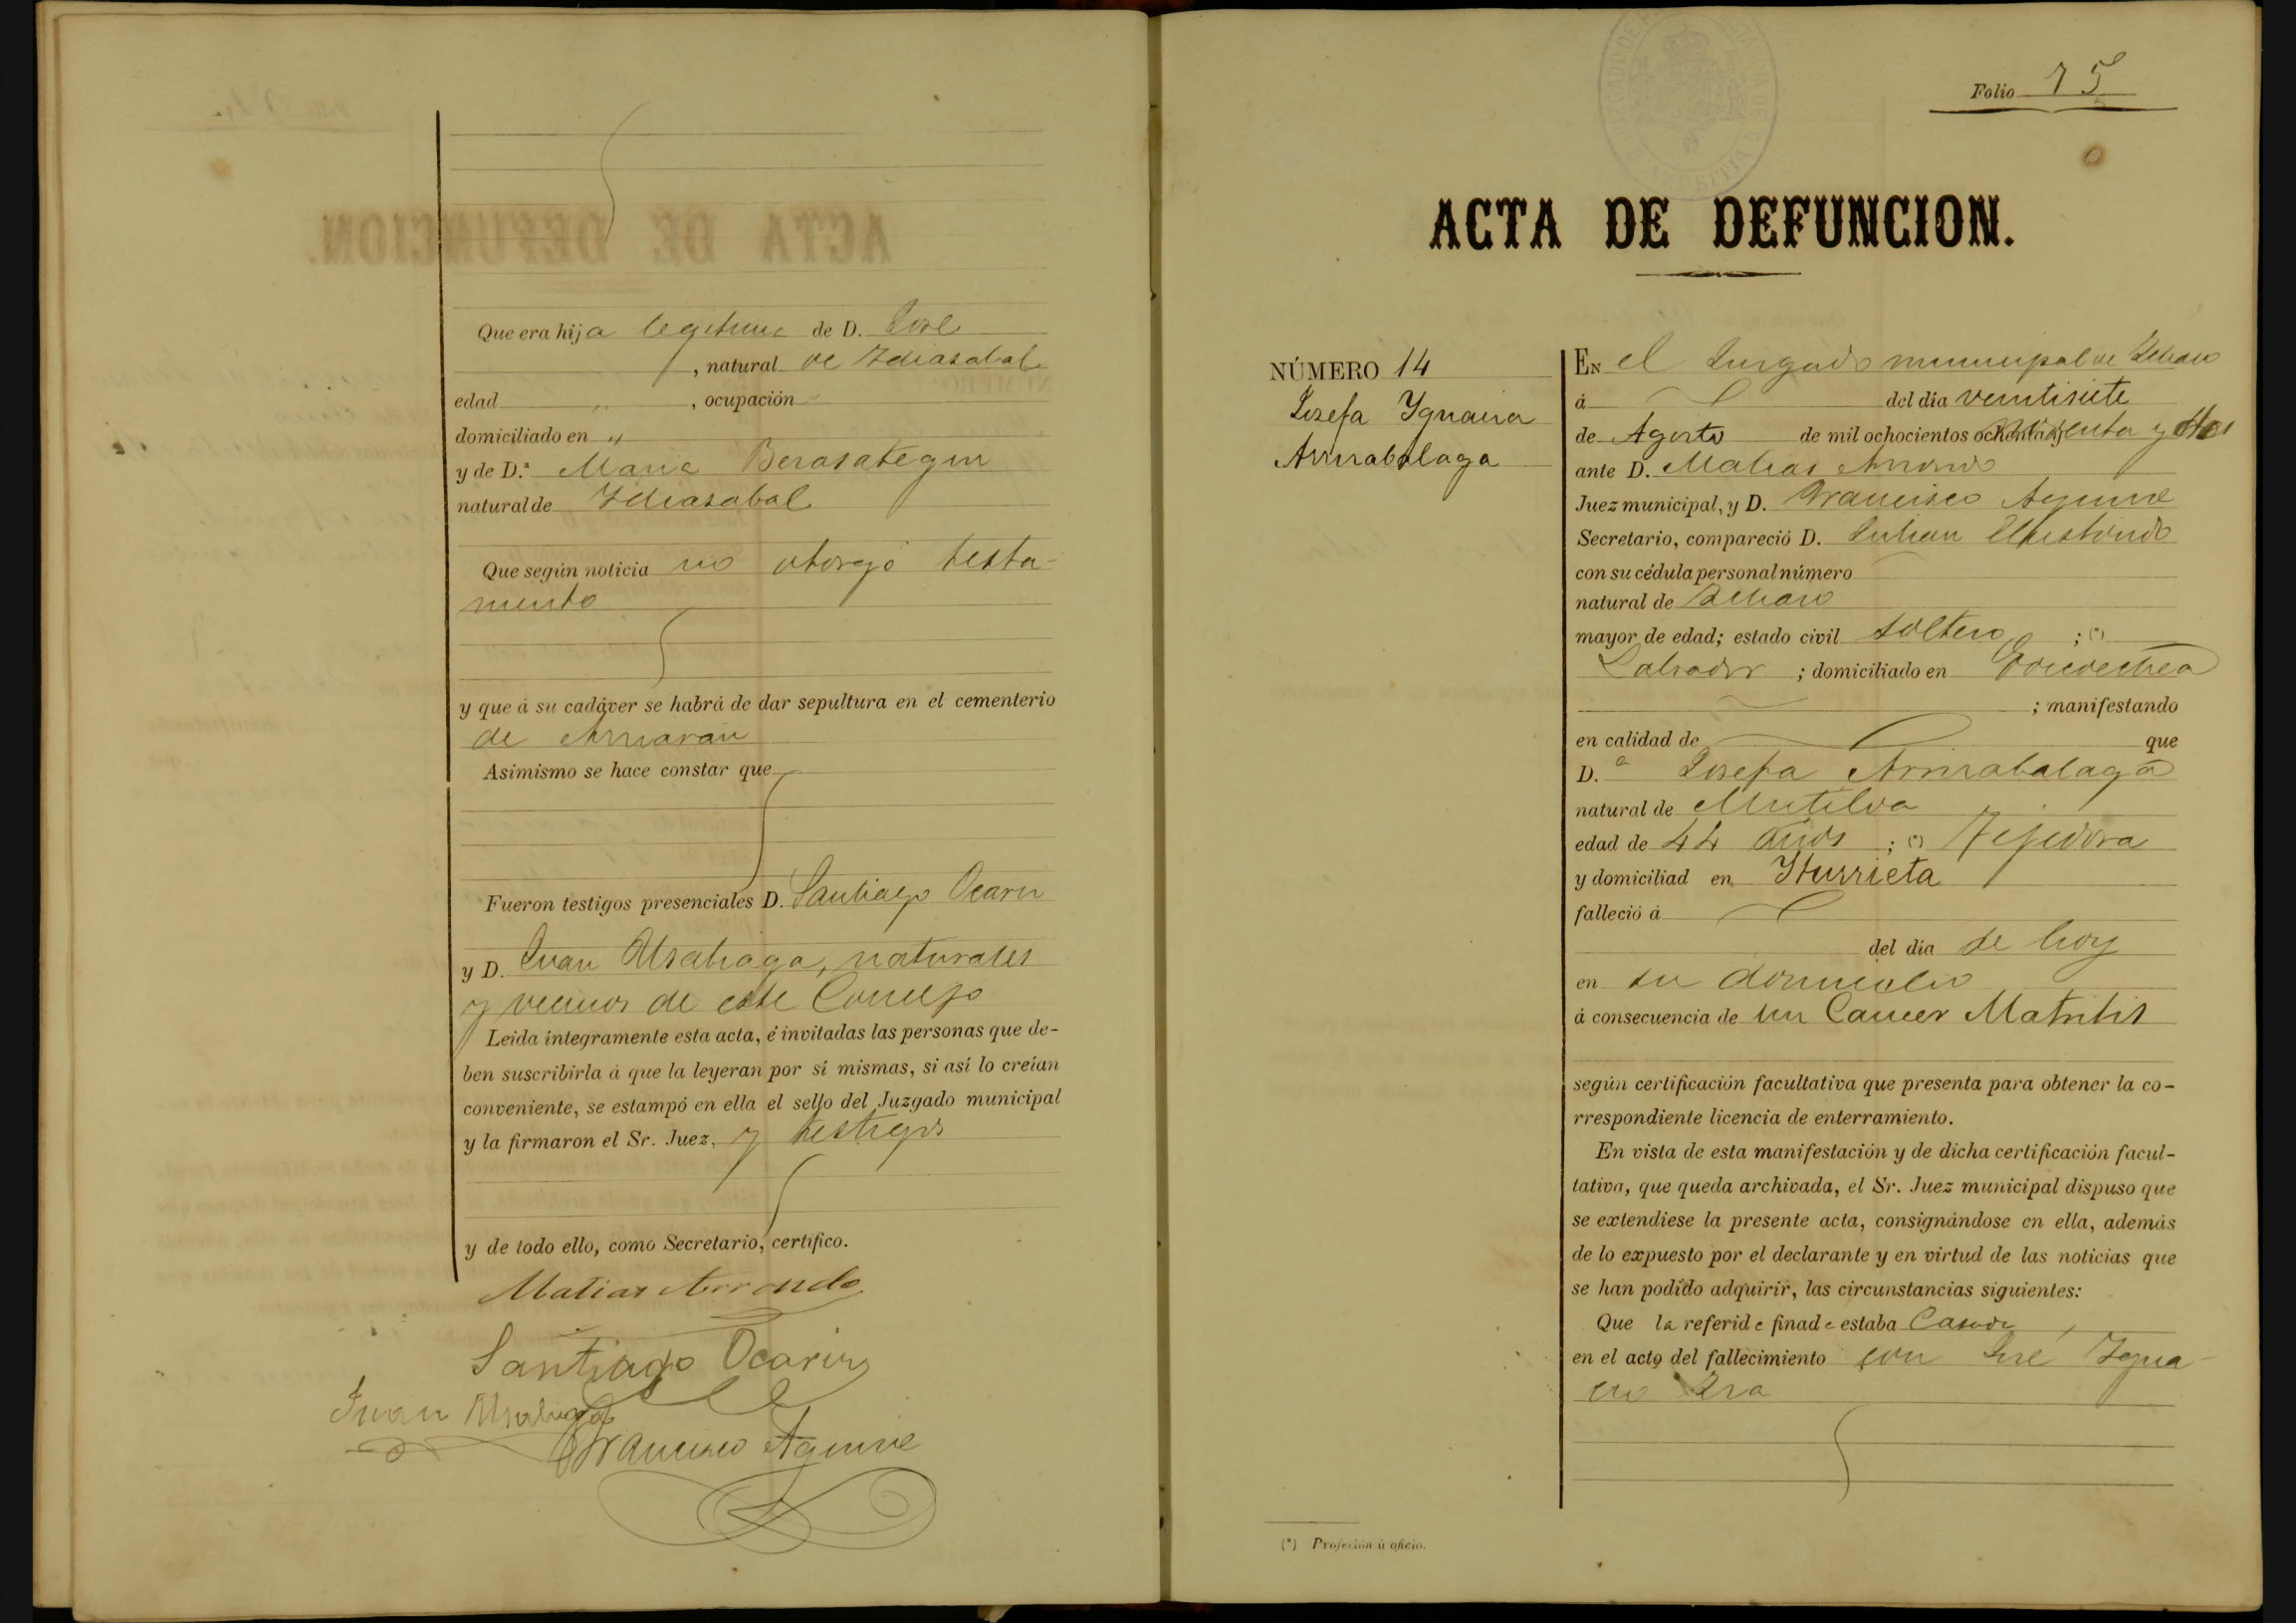 Que era hija legitima de D. José
, natural de Idiasabal
edad " , ocupación
domiciliado en "
y de D.ª Maria Berasategui
natural de Idiasabal
Que según noticia no otorgó testa-
mento
y que á su cadáver se habrá de dar sepultura en el cementerio
de Arriaran
Asimismo se hace constar que
Fueron testigos presenciales D. Santiago Ocariz
y D. Juan Usabiaga, naturales
y vecinos de este Concejo
Leida integramente esta acta, é invitadas las personas que de-
ben suscribirla á que la leyeran por sí mismas, si así lo creían
conveniente, se estampó en ella el sello del Juzgado municipal
y la firmaron el Sr. Juez, y testigos
y de todo ello, como Secretario, certifico.
Matias Arrondo
Santiago Ocariz
Juan Usabiaga
Francisco Aguirre
Folio 15
ACTA DE DEFUNCION.
NÚMERO 14
Josefa Ygnacia
Arrirabalaga
EN el Juzgado municipal de
á del dia ventisiete
de Agosto de mil ochocientos y dos
ante D. Matias Arrondo
Juez municipal, y D. Francisco Aguirre
Secretario, compareció D. Julian
con su cédula personal número
natural de
mayor de edad; estado civil soltero ; (*)
Labrador ; domiciliado en Goicoechea
; manifestando
en calidad de que
D.ª Josefa Arrirabalaga
natural de Mutiloa
edad de 44 años ; (*) Tejedora
y domiciliad en Yturrieta
falleció á
del dia de hoy
en su domicilio
á consecuencia de un Cancer Matritis
según certificación facultativa que presenta para obtener la co-
rrespondiente licencia de enterramiento.
En vista de esta manifestación y de dicha certificación facul-
tativa, que queda archivada, el Sr. Juez municipal dispuso que
se extendiese la presente acta, consignándose en ella, además
de lo expuesto por el declarante y en virtud de las noticias que
se han podido adquirir, las circunstancias siguientes:
Que la referida finada estaba Casada
en el acto del fallecimiento con José Igna-
cio
(*) Profesión ú oficio.